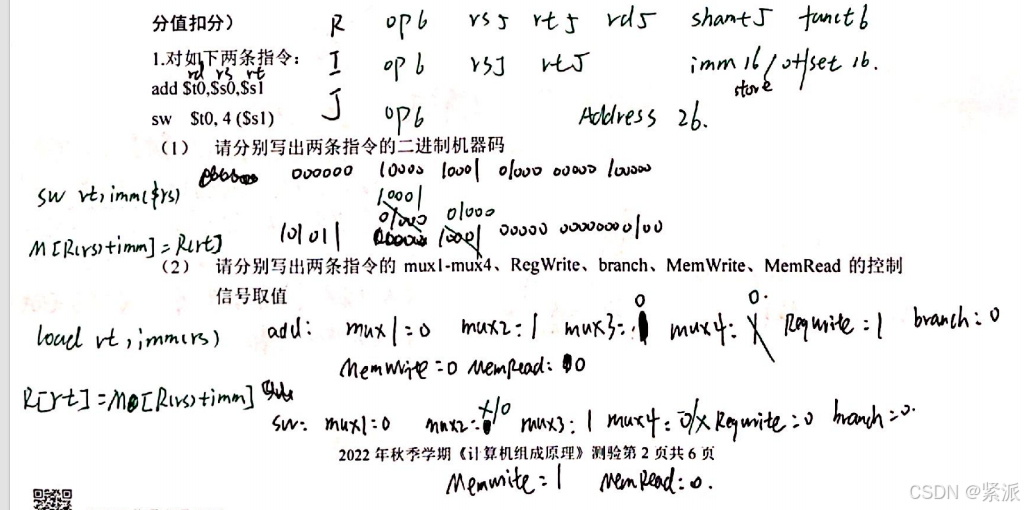 分值扣分） R op6 rs5 rt5 rd5 shamt5 funct6
1.对如下两条指令： I op6 rs5 rt5 imm 16 / offset 16.
rd rs rt
store
add $t0,$s0,$s1
J op6 Address 26.
sw $t0, 4 ($s1)
（1） 请分别写出两条指令的二进制机器码
000000 10000 10001 01000 00000 100000
sw rt, imm($rs)
10001
01000 01000
M[R(rs)+imm]=R[rt] 101011 10001 00000 00000000100
（2） 请分别写出两条指令的 mux1-mux4、RegWrite、branch、MemWrite、MemRead 的控制
信号取值
0 0.
load rt, imm(rs) add: mux1=0 mux2:1 mux3: mux4: X Regwrite=1 branch:0
Memwrite=0 MemRead:0
R[rt]=M[R(rs)+imm]
sw: mux1=0 mux2: X/0 mux3:1 mux4: 0/X Regwrite=0 branch=0.
2022 年秋季学期《计算机组成原理》测验第 2 页共 6 页
Memwrite=1 MemRead:0.
CSDN @紧派